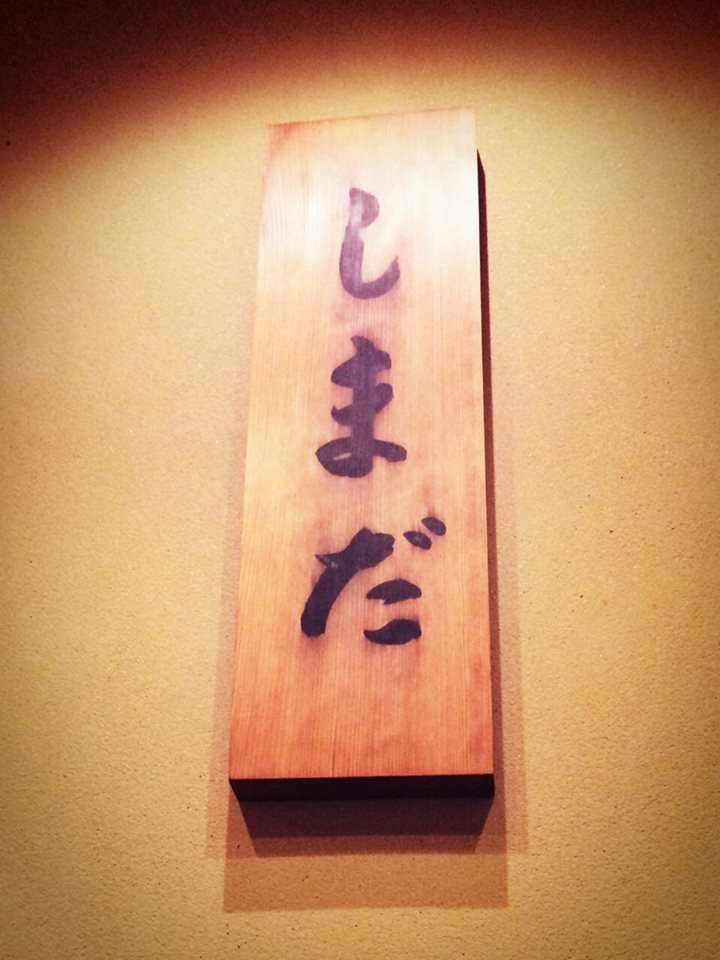 しまだ